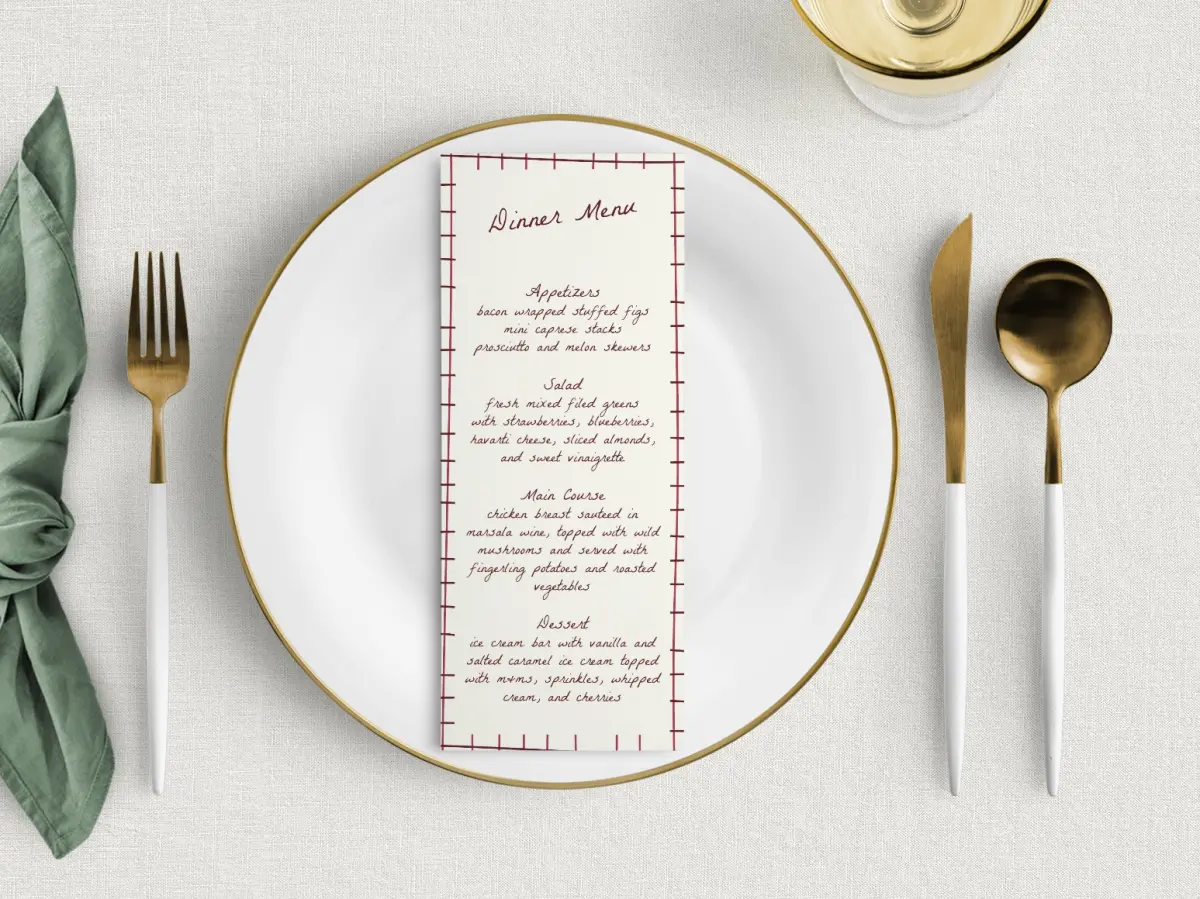 Dinner Menu
Appetizers
bacon wrapped stuffed figs
mini caprese stacks
prosciutto and melon skewers
Salad
fresh mixed filed greens
with strawberries, blueberries,
havarti cheese, sliced almonds,
and sweet vinaigrette
Main Course
chicken breast sauteed in
marsala wine, topped with wild
mushrooms and served with
fingerling potatoes and roasted
vegetables
Dessert
ice cream bar with vanilla and
salted caramel ice cream topped
with m+ms, sprinkles, whipped
cream, and cherries